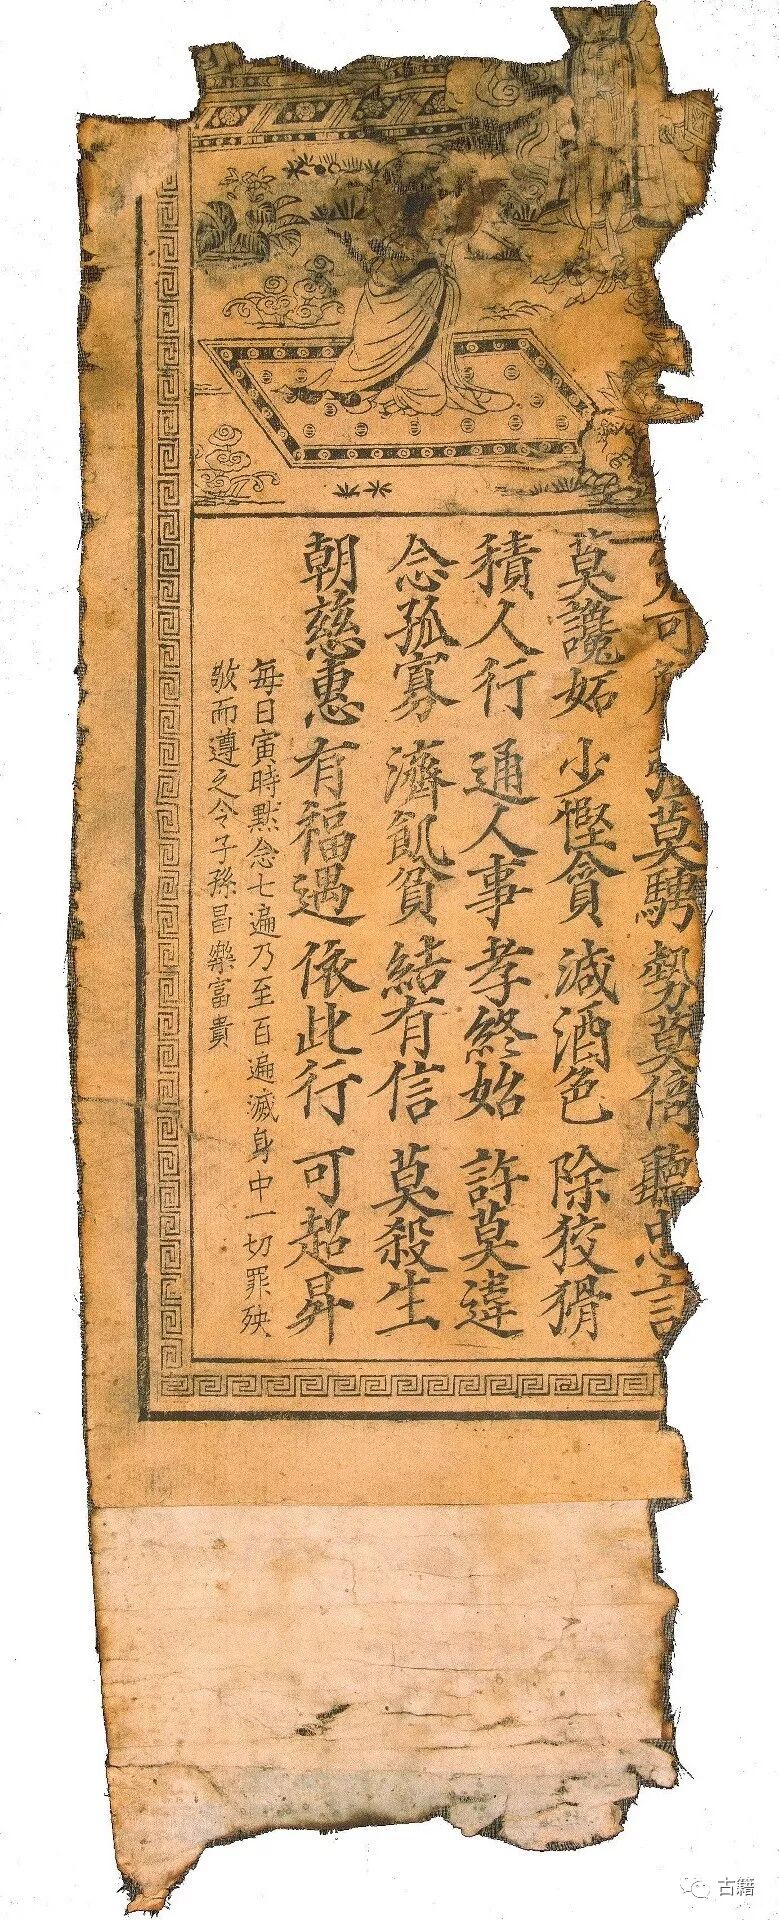 可 莫騁 勢莫 聽忠言
莫讒妬 少慳貪 減酒色 除狡猾
積人行 通人事 孝終始 許莫違
念孤寡 濟飢貧 結有信 莫殺生
朝慈惠 有福遇 依此行 可超昇
每日寅時默念七遍乃至百遍滅身中一切罪殃
敬而遵之令子孫昌樂富貴
古籍